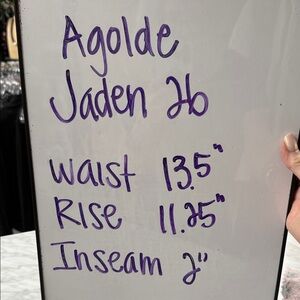 Agolde
Jaden 26
Waist 13.5"
Rise 11.25"
Inseam 2"